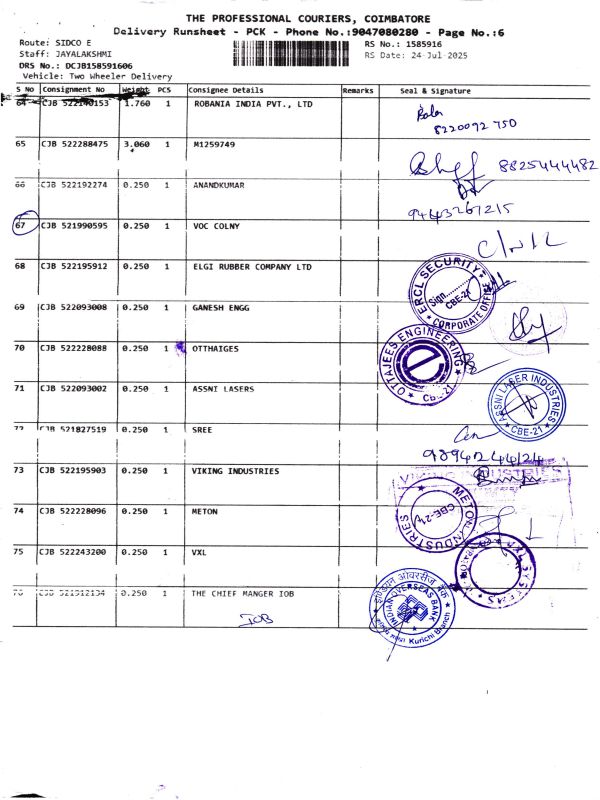 THE PROFESSIONAL COURIERS, COIMBATORE
Delivery Runsheet - PCK - Phone No.:9047080280 - Page No.:6
Route: SIDCO E
RS No.: 1585916
Staff: JAYALAKSHMI
RS Date: 24-Jul-2025
DRS No.: DCJB158591606
Vehicle: Two Wheeler Delivery
S No Consignment No Weight PCS Consignee Details Remarks Seal & Signature
64 CJB 522140153 1.760 1 ROBANIA INDIA PVT., LTD
8220092 750
65 CJB 522288475 3.060 1 M1259749
8825444482
66 CJB 522192274 0.250 1 ANANDKUMAR
9443267215
67 CJB 521990595 0.250 1 VOC COLNY
68 CJB 522195912 0.250 1 ELGI RUBBER COMPANY LTD
ERCL SECURITY
Sign.
CBE-21
CORPORATE OFFICE
69 CJB 522093008 0.250 1 GANESH ENGG
70 CJB 522228088 0.250 1 OTTHAIGES
OTTAJEES ENGINEERING
e
CBE-21
71 CJB 522093002 0.250 1 ASSNI LASERS
ASSNI LASER INDUSTRIES
CBE-21
72 CJB 521827519 0.250 1 SREE
9894244124
73 CJB 522195903 0.250 1 VIKING INDUSTRIES
VIKING INDUSTRIES
74 CJB 522228096 0.250 1 METON
METON INDUSTRIES
CBE-21
75 CJB 522243200 0.250 1 VXL
VXL SYSTEMS
76 CJB 1 THE CHIEF MANGER IOB
0.250
IOB
इण्डियन ओवरसीज़ बैंक
INDIAN OVERSEAS BANK
Kurichi Branch